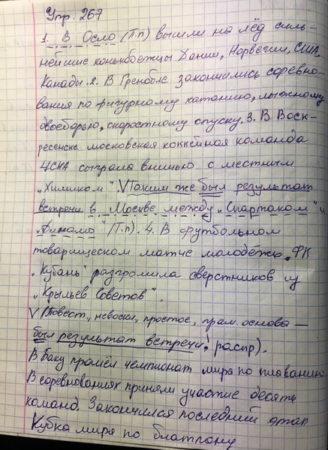 Упр. 267
1. В Осло (П.п) вышли на лёд силь-
нейшие конькобежцы Дании, Норвегии, США,
Канады. 2. В Гренобле закончились соревно-
вания по фигурному катанию, лыжному
двоеборью, скоростному спуску. 3. В Воск-
ресенске московская хоккейная команда
ЦСКА сыграла вничью с местным
„Химиком". V Таким же был результат
встречи в Москве между „Спартаком" и
„Динамо" (П.п). 4. В футбольном
товарищеском матче молодёжь ФК
„Кубань" разгромила сверстников из
„Крыльев Советов".
V (Повест, невоскл, простое, грам. основа –
был результат встречи, распр).
В Баку прошёл чемпионат мира по плаванию
В соревнованиях приняли участие десять
команд. Закончился последний этап
Кубка мира по биатлону